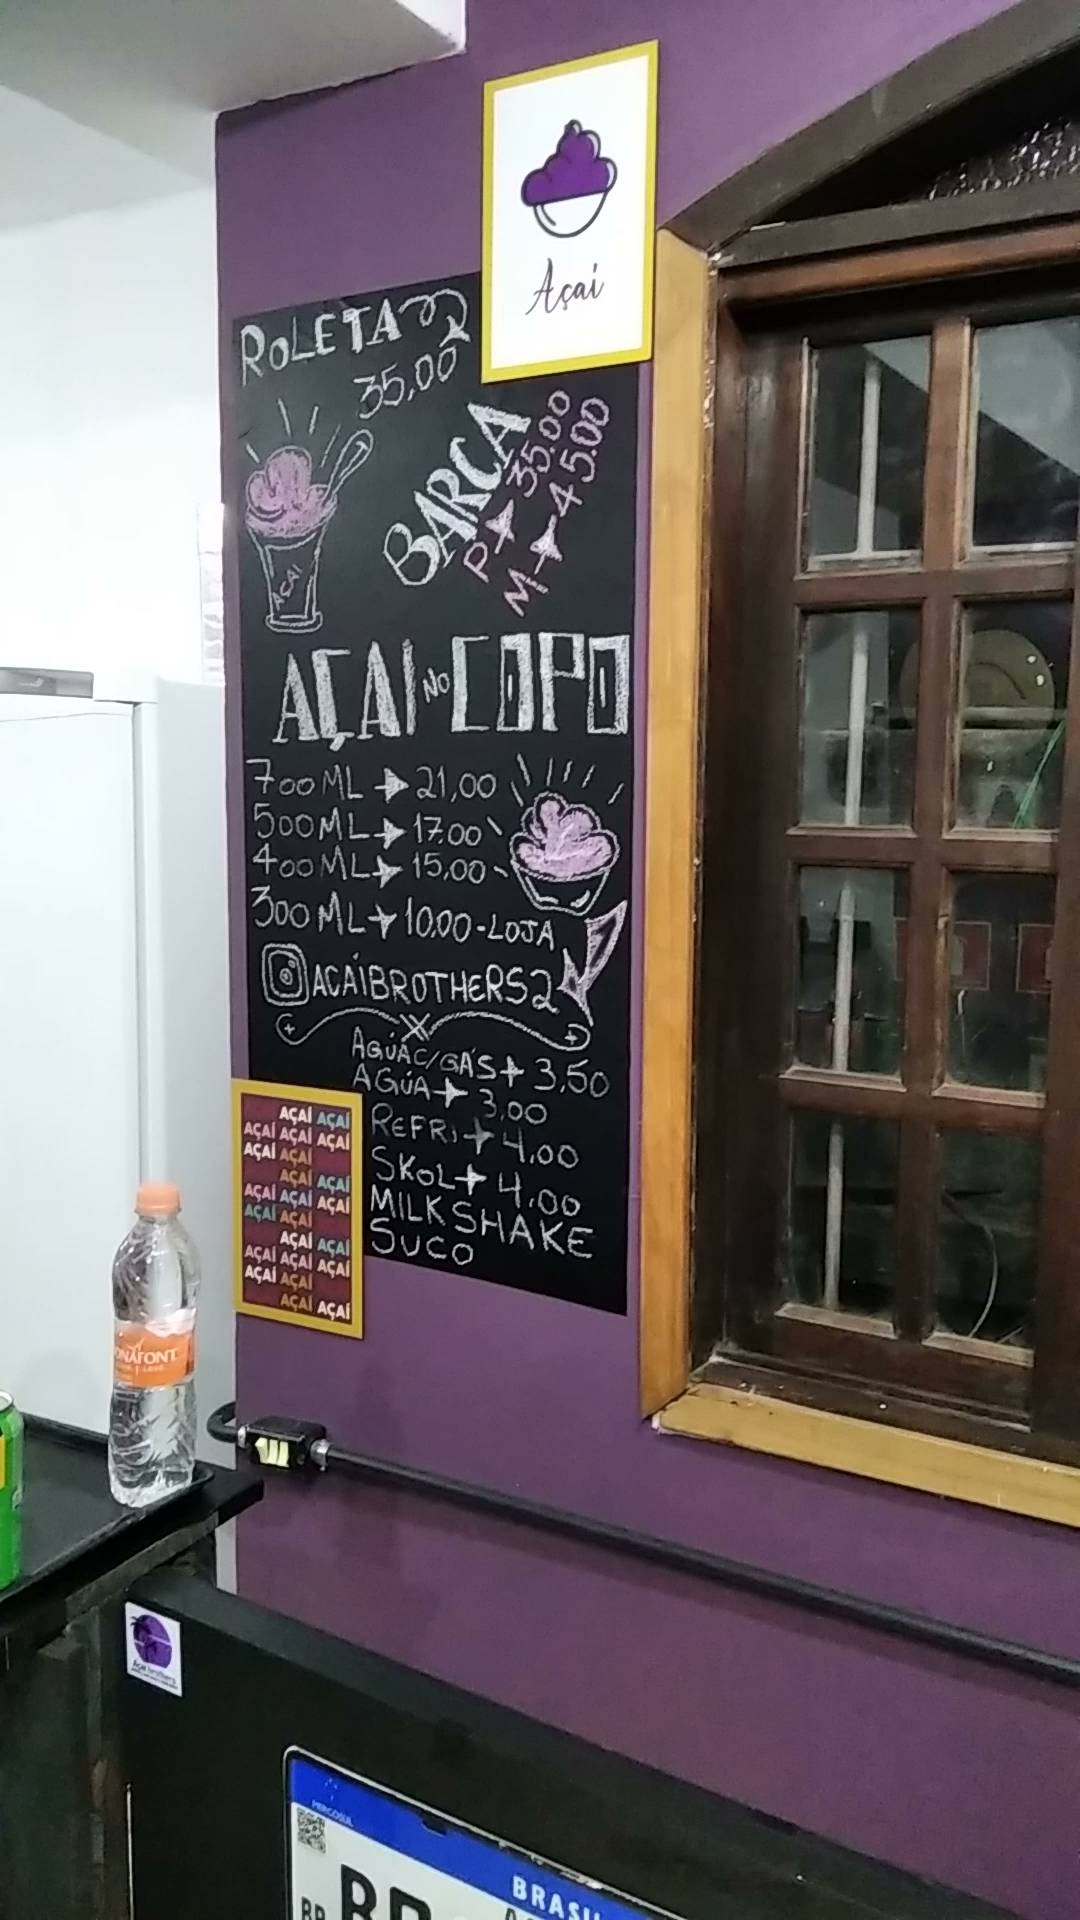 Açaí
ROLETA
35,00
BARCA
P → 35.00
M → 45.00
AÇAI
AÇAI NO COPO
700 ML → 21,00
500 ML → 17.00
400 ML → 15,00
300 ML → 10,00 - LOJA
AÇÁIBROTHERS2
AGÚA C/GÁS → 3,50
AGÚA → 3,00
REFRI → 4,00
SKOL → 4,00
MILK SHAKE
SUCO
AÇAÍ AÇAÍ
AÇAÍ AÇAÍ AÇAÍ
AÇAÍ AÇAÍ
AÇAÍ AÇAÍ
AÇAÍ AÇAÍ AÇAÍ
AÇAÍ AÇAÍ
AÇAÍ AÇAÍ
AÇAÍ AÇAÍ AÇAÍ
AÇAÍ AÇAÍ
AÇAÍ AÇAÍ
BONAFONT
Açaí brothers
MERCOSUL
BRASIL
BR